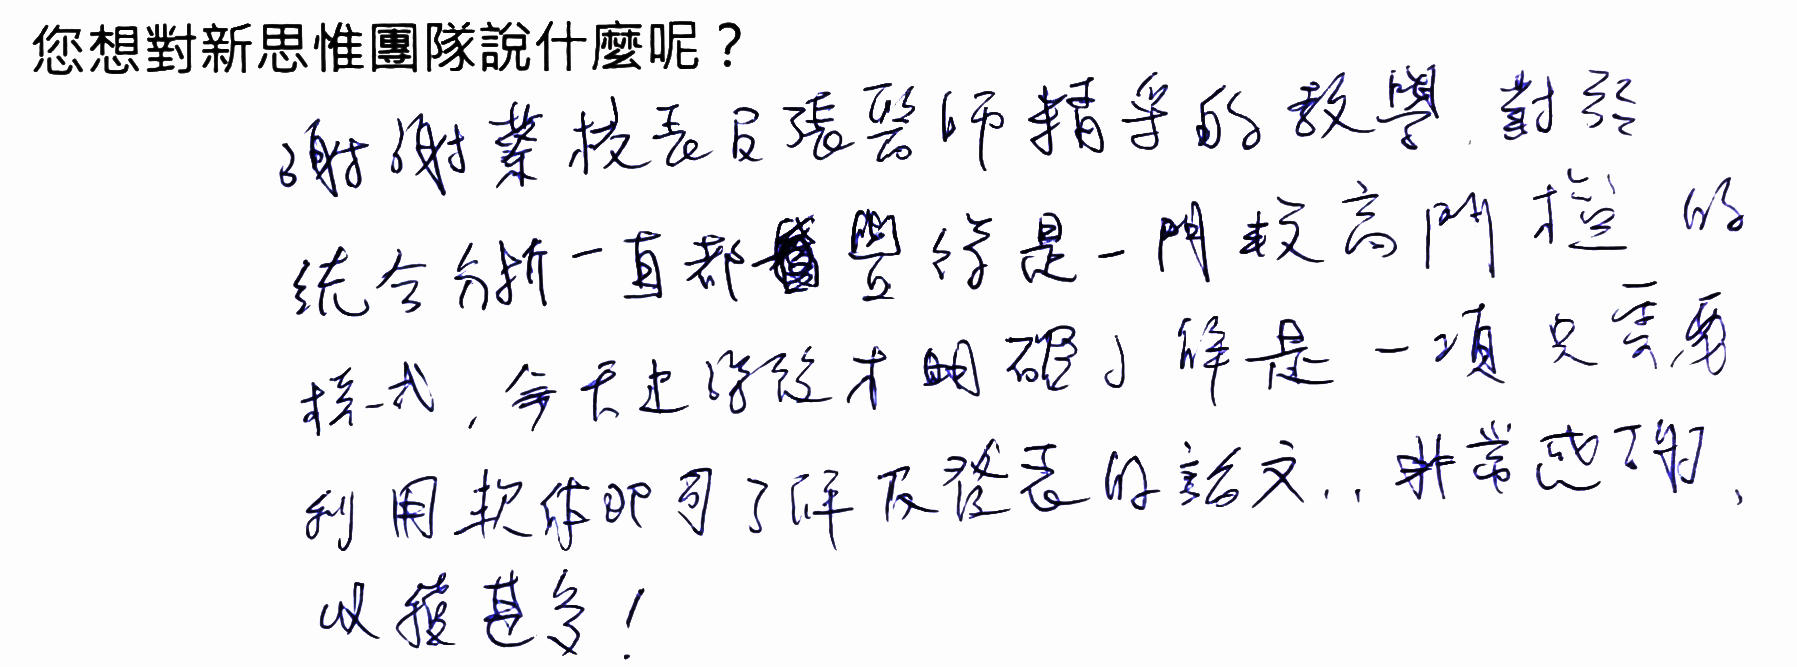 您想對新思惟團隊說什麼呢？
謝謝蔡校長及張醫師精采的教學，對於
統合分析一直都覺得是一門較高門檻的
模式，今天上課後才明確了解是一項只需要
利用軟体即可了解及發表的論文..非常感謝，
收獲甚多！